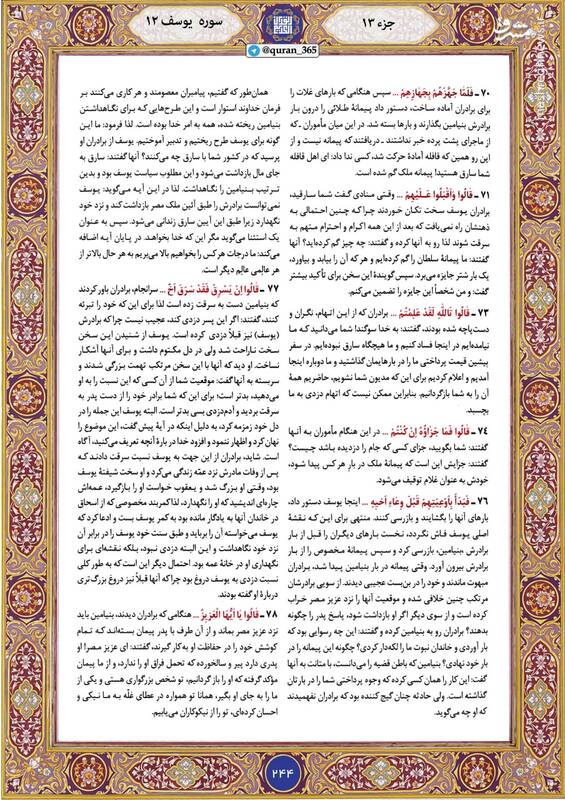 جزء ۱۳
سوره یوسف ۱۲
@quran_365
مشرق
۷۰ ـ فَلَمّا جَهَّزَهُمْ بِجَهازِهِمْ ... سپس هنگامی که بارهای غلات را
برای برادران آماده ساخت، دستور داد پیمانهٔ طلائی را درون بار
برادرش بنیامین بگذارند و بارها بسته شد. در این میان مأموران ـ که
از ماجرای پشت پرده خبر نداشتند ـ دریافتند که پیمانه نیست و از
این رو همین که قافله آمادهٔ حرکت شد، کسی ندا داد: ای اهل قافله
شما سارق هستید! پیمانه ملک گم شده است.
۷۱ ـ قالُوا وَأَقْبَلُوا عَلَیْهِمْ ... وقتی منادی گفت شما سارقید،
برادران یوسف سخت تکان خوردند چرا که چنین احتمالی به
ذهنشان راه نمی‌یافت که بعد از این همه اکرام و احترام متهم به
سرقت شوند لذا رو به آنها کرده و گفتند: چه چیز گم کرده‌اید؟ آنها
گفتند: ما پیمانهٔ سلطان را گم کرده‌ایم و هر که آن را بیابد و بیاورد،
یک بار شتر جایزه می‌برد. سپس گویندهٔ این سخن برای تأکید بیشتر
گفت: و من شخصاً این جایزه را تضمین می‌کنم.
۷۳ ـ قالُوا تَاللّهِ لَقَدْ عَلِمْتُمْ ... برادران که از این اتهام، نگران و
دست‌پاچه شده بودند، گفتند: به خدا سوگند! شما می‌دانید که ما
نیامده‌ایم در اینجا فساد کنیم و ما هیچگاه سارق نبوده‌ایم. در سفر
پیشین قیمت پرداختی ما را در بارهایمان گذاشتید و ما دوباره اینجا
آمدیم و اعلام کردیم برای این که مدیون شما نشویم، حاضریم همهٔ
آن را به شما بازگردانیم. بنابراین ممکن نیست که اتهام دزدی به ما
بچسبد.
۷۴ ـ قالُوا فَما جَزاؤُهُ اِنْ کُنْتُمْ ... در این هنگام مأموران به آنها
گفتند: شما بگویید، جزای کسی که جام را دزدیده باشد چیست؟
گفتند: جزایش این است که پیمانهٔ ملک در بار هر کس پیدا شود،
خودش به عنوان غلام توقیف می‌شود.
۷۶ ـ فَبَدَأَ بِأَوْعِیَتِهِمْ قَبْلَ وِعاءِ اَخیهِ ... اینجا یوسف دستور داد،
بارهای آنها را بگشایند و بازرسی کنند. منتهی برای این که نقشهٔ
اصلی یوسف فاش نگردد، نخست بارهای دیگران را قبل از بار
برادرش بنیامین، بازرسی کرد و سپس پیمانهٔ مخصوص را از بار
برادرش بیرون آورد. وقتی پیمانه در بار بنیامین پیدا شد، برادران
مبهوت ماندند و خود را در بن‌بست عجیبی دیدند. از سویی برادرشان
مرتکب چنین خلافی شده و موقعیت آنها را نزد عزیز مصر خراب
کرده است و از سوی دیگر اگر او بازداشت شود، پاسخ پدر را چگونه
بدهند؟ برادران رو به بنیامین کرده و گفتند: این چه رسوایی بود که
بار آوردی و خاندان نبوت ما را لکه‌دار کردی؟ چگونه این پیمانه را در
بار خود نهادی؟ بنیامین که باطن قضیه را می‌دانست، با متانت به آنها
گفت: این کار را همان کسی کرده که وجوه پرداختی شما را در بارتان
گذاشته است. ولی حادثه چنان گیج کننده بود که برادران نفهمیدند
که او چه می‌گوید.
همان‌طور که گفتیم، پیامبران معصومند و هر کاری می‌کنند بر
فرمان خداوند استوار است و این طرح‌هایی که برای نگاهداشتن
بنیامین ریخته شده، همه به امر خدا بوده است. لذا فرمود: ما این
گونه برای یوسف طرح ریختیم و تدبیر آموختیم. یوسف از برادران او
پرسید که در کشور شما با سارق چه می‌کنند؟ آنها گفتند: سارق به
جای مال بازداشت می‌شود و این مطلوب سیاست یوسف بود و بدین
ترتیب بنیامین را نگاهداشت. لذا در این آیه می‌گوید: یوسف
نمی‌توانست برادرش را طبق آئین ملک مصر بازداشت کند و نزد خود
نگهدارد زیرا طبق این آیین سارق زندانی می‌شود. سپس به عنوان
یک استثنا می‌گوید مگر این که خدا بخواهد. در پایان آیه اضافه
می‌کند: ما درجات هر کس را بخواهیم بالا می‌بریم به هر حال بالاتر از
هر عالِمی عالِم دیگر است.
۷۷ ـ قالُوا اِنْ یَسْرِقْ فَقَدْ سَرَقَ اَخٌ ... سرانجام، برادران باور کردند
که بنیامین دست به سرقت زده است لذا برای این که خود را تبرئه
کنند، گفتند: اگر این پسر دزدی کند، عجیب نیست چرا که برادرش
(یوسف) نیز قبلاً دزدی کرده است. یوسف از شنیدن این سخن
سخت ناراحت شد ولی در دل مکتوم داشت و برای آنها آشکار
نساخت. او دید که آنها با این سخن مرتکب تهمت بزرگی شدند و
سربسته به آنها گفت: موقعیت شما از آن کسی که این نسبت را به او
می‌دهید، بدتر است؛ برای این که شما برادر خود را از دست پدر به
سرقت بردید و آدم‌دزدی بسی بدتر است. البته یوسف این جمله را در
دل خود زمزمه کرد، به دلیل اینکه در آیهٔ پیش گفت، این موضوع را
نهان کرد و اظهار ننمود و افزود خدا در بارهٔ آنچه تعریف می‌کنید، آگاه
است. شاید، برادران از این جهت به یوسف نسبت سرقت دادند که
پس از وفات مادرش نزد عمّه زندگی می‌کرد و او سخت شیفتهٔ یوسف
بود، وقتی او بزرگ شد و یعقوب خواست او را بازگیرد، عمه‌اش
چاره‌ای اندیشید که او را نگهدارد، لذا کمربند مخصوصی که از اسحاق
در خاندان آنها به یادگار مانده بود به کمر یوسف بست و ادعا کرد که
یوسف می‌خواسته آن را برباید و طبق سنت خود یوسف را در برابر آن
نزد خود نگاهداشت و این البته دزدی نبود، بلکه نقشه‌ای برای
نگهداری او در خانهٔ عمه بود. احتمال دیگر این است که به طور کلی
نسبت دزدی به یوسف دروغ بود چرا که آنها قبلاً نیز دروغ بزرگ تری
دربارهٔ او گفته بودند.
۷۸ ـ قالُوا یا اَیُّهَا الْعَزیزُ ... هنگامی که برادران دیدند، بنیامین باید
نزد عزیز مصر بماند و از آن طرف با پدر پیمان بسته‌اند که تمام
کوشش خود را در حفاظت او به کار گیرند، گفتند: ای عزیز مصر! او
پدری دارد پیر و سالخورده که تحمل فراق او را ندارد، و از ما پیمان
مؤکد گرفته که او را باز گردانیم، تو شخص بزرگواری هستی و یکی از
ما را به جای او بگیر، همانا تو همواره در عطای غلّه به ما نیکی و
احسان کرده‌ای، تو را از نیکوکاران می‌یابیم.
۲۴۴